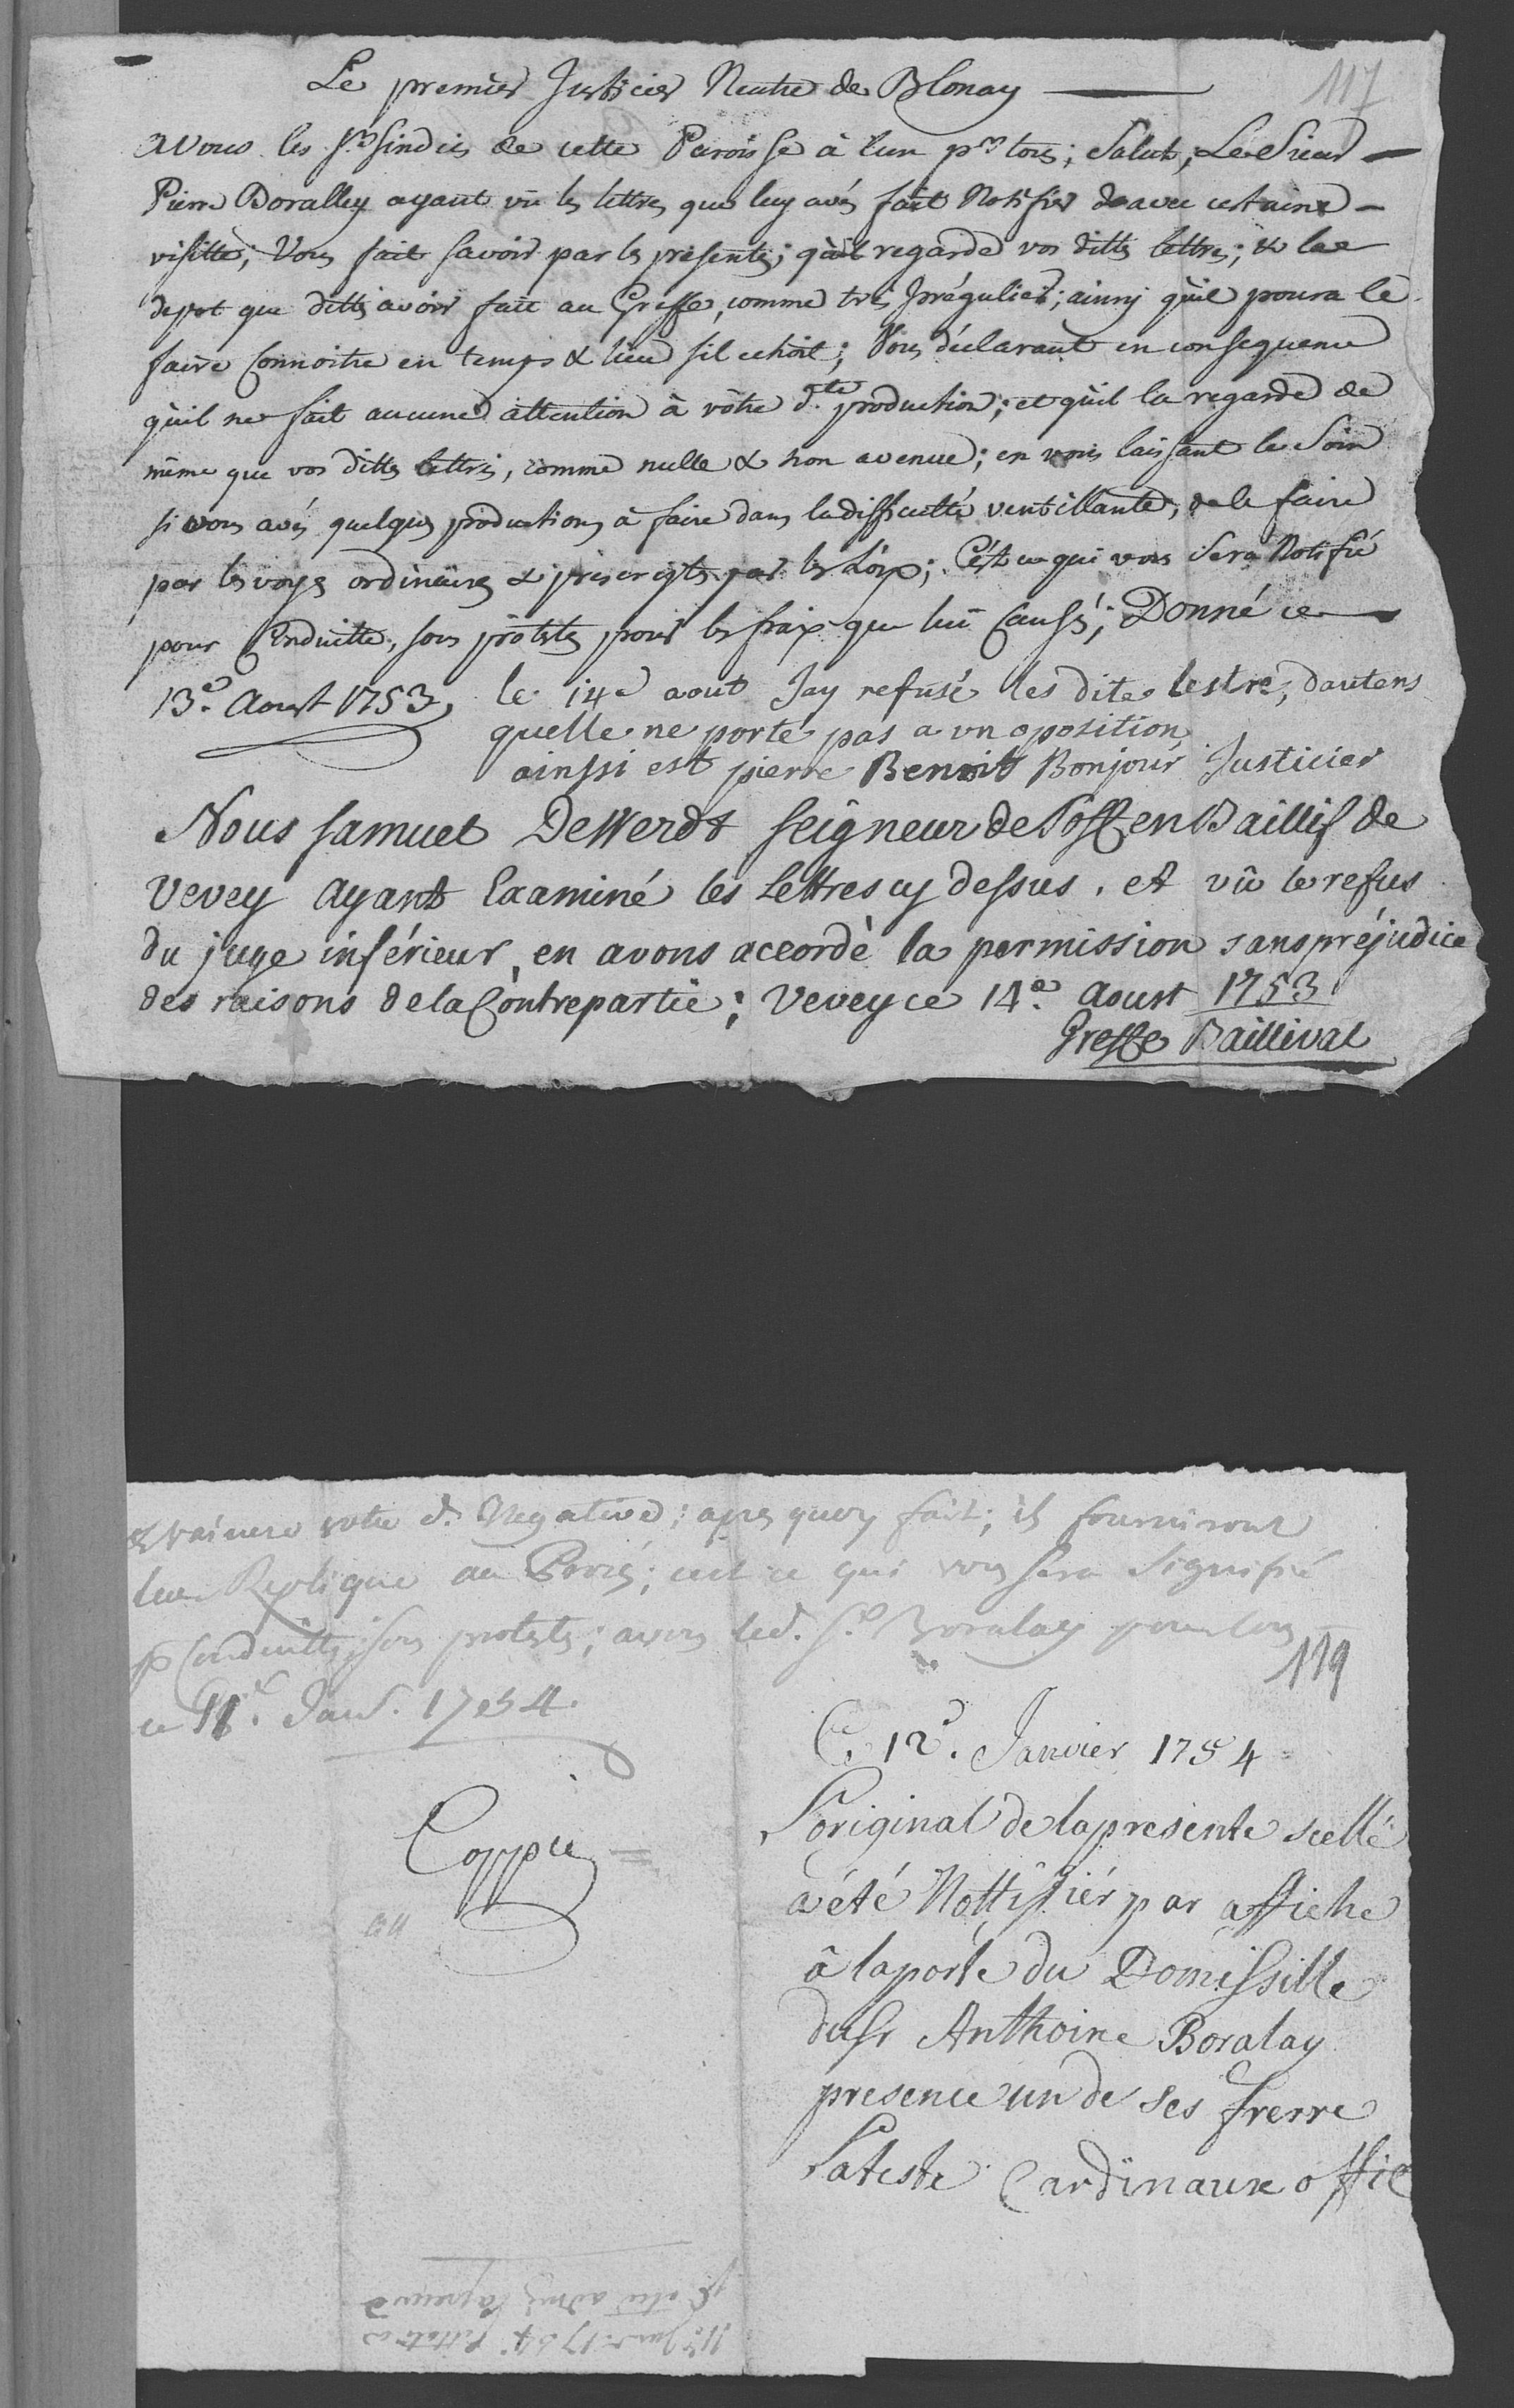 117
Le premier Justicier Neutre de Blonay
A vous les Srs sindics de cette Paroisse à l'un pr tous; Salut, Le Sieur
Pierre Boralley ayant vû les lettres que luy avés fait Notifier avec certaine
visitte; Vous fait savoir par les présentes; qu'il regarde vos dittes lettres; & le
depot que dittes avoir fait au Greffe, comme très Irrégulier; ainsy qu'il poura le
faire Connoitre en temps & lieu s'il echoit; Vous déclarant en consequence
qu'il ne fait aucune attention à vôtre d.te production; et qu'il la regarde de
même que vos dittes lettres, comme nulle & non avenue; en vous laissant le Soin
si vous avés quelques productions à faire dans la difficulté ventillante, de le faire
par les voyes ordinaires & prescriptes par les Loix; C'est ce qui vous Sera Notifié
pour Conduitte, sous proteste pour les fraix que lui Causés; Donné ce
13.e Aoust 1753,
le 14e aout Jay refusé les dite lestre, dautens
quelle ne porte pas a vn oposition
ainssi est pierre Benoit Bonjour Justicier
Nous Samuel DeWerdt Seigneur de Toffen Baillif de
Vevey ayant Examiné les Lettres cy dessus, et vû le refus
du juge inférieur, en avons accordé la permission sans préjudice
des raisons de la Contrepartie; Vevey ce 14.e Aoust 1753
Greffe Baillival
vaincre votre d. Negative; apres quoy fait; ils fourniront
leur Replique au Procés; c'est ce qui vous sera Signifié
p Conduitte, sous proteste; led. Sr Boralay pour tous
ce 11e. Janv. 1754.
119
Coppie
Ce 12e. Janvier 1754
Loriginal de la presente scellé
a été Nottifiér par affiche
â la porte du Domissille
du Sr Anthoine Boralay
presence un de ses frerre
Lateste Cardinaux offic
11e Janv. 1754